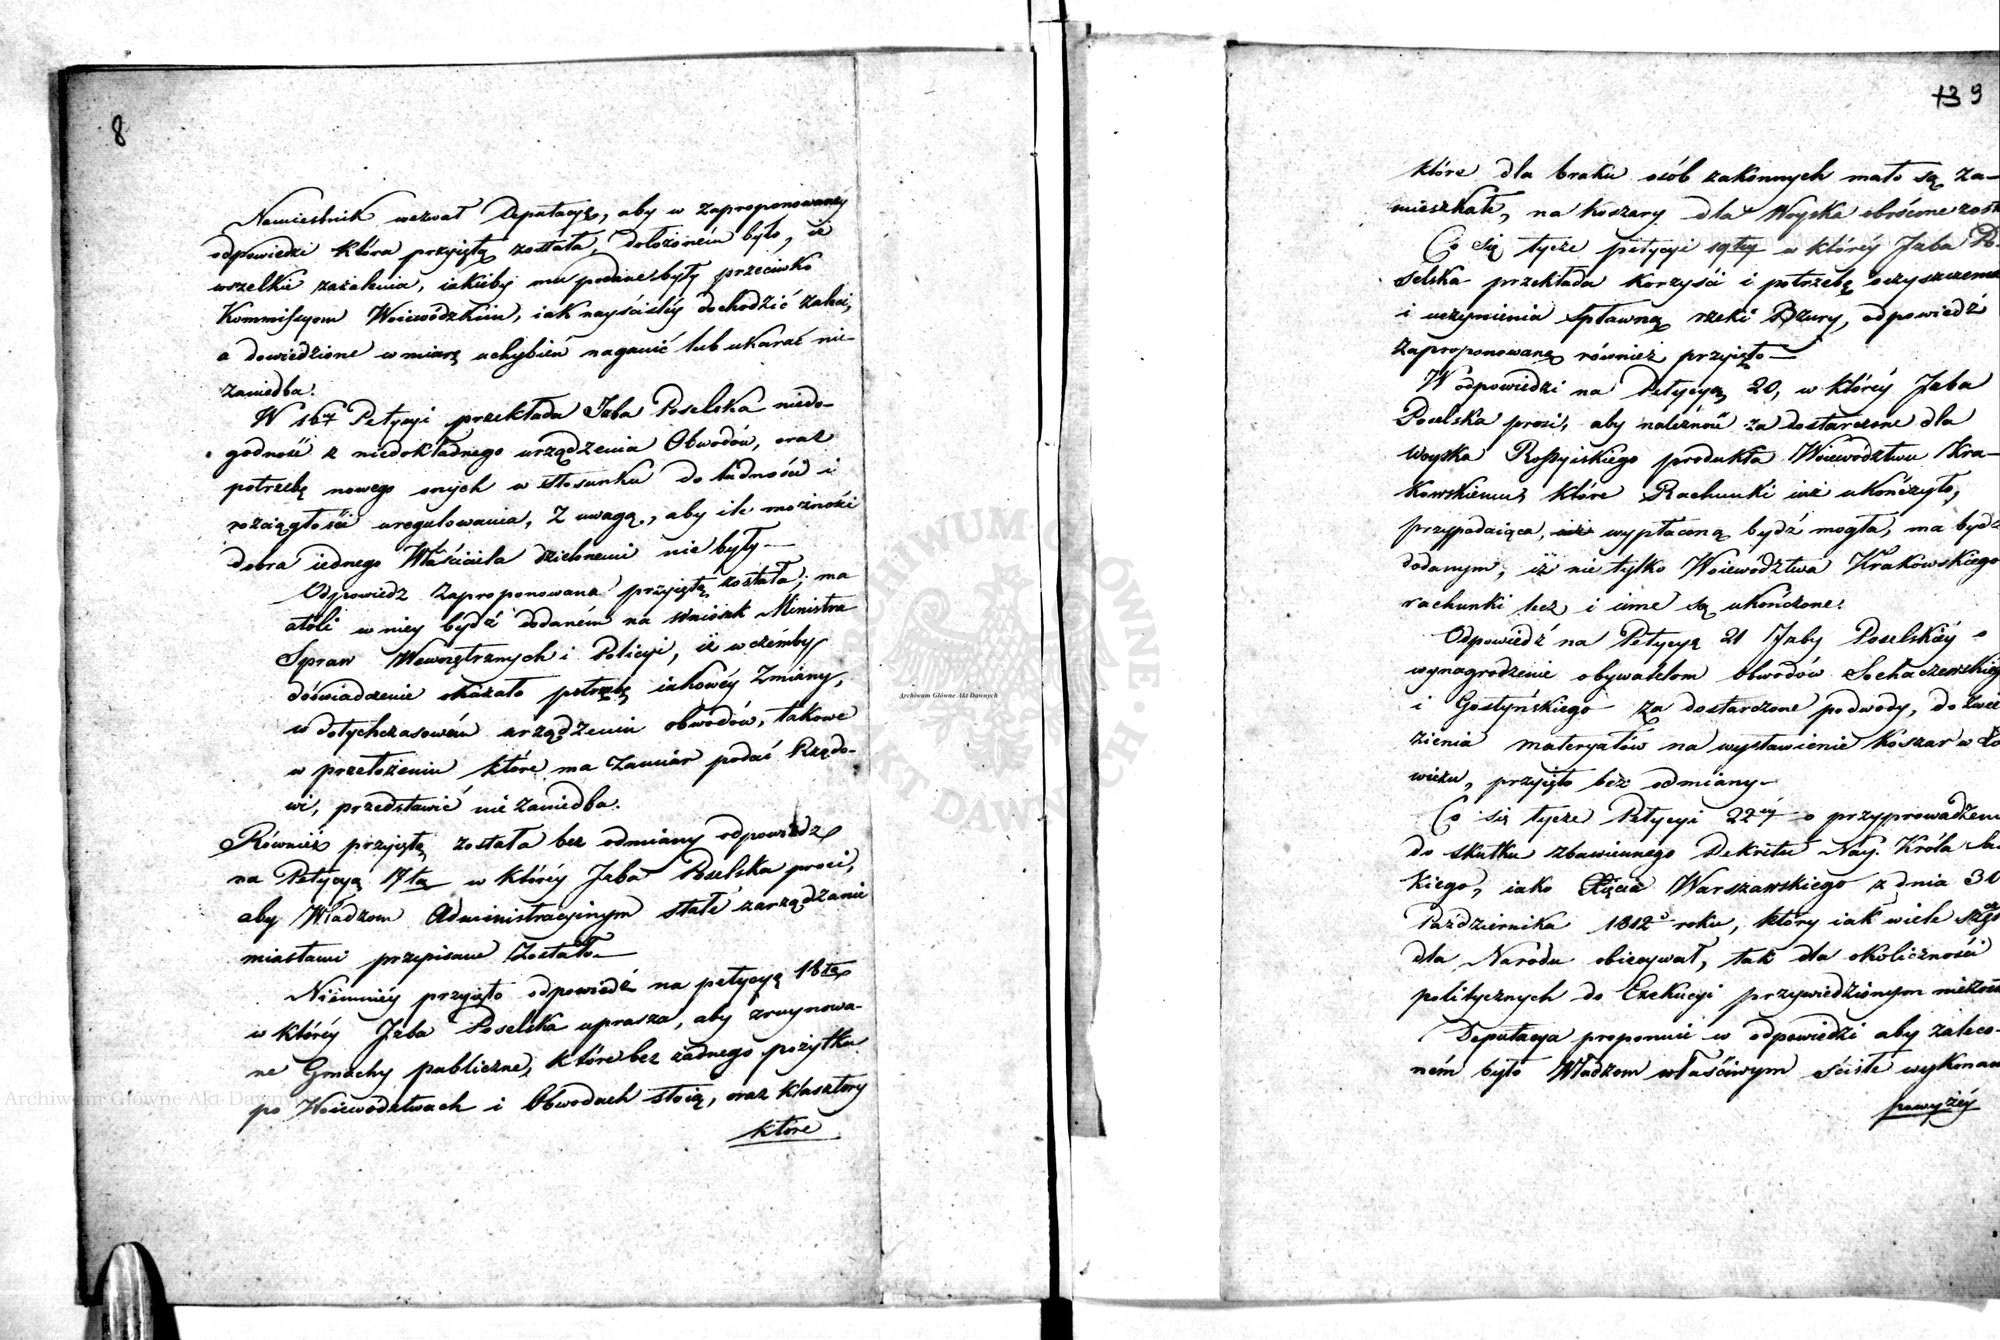 8
Namiestnik wezwał Deputacyę, aby w zaproponowaney
odpowiedzi która przyiętą została, dołożonem było, iż
wszelkie zażalenia, iakieby mu podane były przeciwko
Kommissyom Woiewódzkim, iak nayściśley dochodzić zaleci,
a dowiedzione w miarę uchybień naganić lub ukarać nie-
zaniedba.
W 16tej Petycyi przekłada Izba Poselska niedo-
godność z niedokładnego urządzenia Obwodów, oraz
potrzebę nowego onych w stosunku do ludności i
rozciągłości uregulowania, z uwagą, aby ile możności
dobra iednego Właściciela dzielonemi nie były—
Odpowiedź zaproponowana przyiętą została; ma
atoli w niey bydź dodaném na wniosek Ministra
Spraw Wewnętrznych i Policyi, iż w czémby
doświadczenie okazało potrzebę iakowéy zmiany,
w dotychczasowém urządzeniu obwodów, takowe
w przełożeniu które ma zamiar podać Rządo-
wi, przedstawić nie zaniedba.
Również przyiętą została bez odmiany odpowiedź
na Petycyą 17tą w któréy Izba Poselska prosi,
aby Władzom Administracyinym stałé zarządzanie
miastami przepisane zostało—
Niemniéy przyięto odpowiedź na petycyą 18tą
w któréy Izba Poselska uprasza, aby zruynowa-
ne Gmachy publiczne, które bez żadnego pożytku
po Woiewództwach i Obwodach stoią, oraz klasztory
które
13 9
które dla braku osób zakonnych mało są za-
mieszkałe, na koszary dla Woyska obrócone zost
Co się tycze petycyi 19tey w któréy Izba Po-
selska przekłada korzyści i potrzebę oczyszczenia
i uczynienia spławną rzeki Bzury, odpowiedź
zaproponowaną również przyięto—
W odpowiedzi na Petycyą 20, w któréy Izba
Poselska prosi, aby należność za dostarczone dla
woyska Rossyiskiego produkta Woiewództwu Kra-
kowskiemu, które Rachunki iuż ukończyło,
przypadaiąca, wypłaconą bydź mogła, ma bydź
dodanym, iż nie tylko Woiewództwa Krakowskiego
rachunki lecz i inne są ukończone.
Odpowiedź na Petycyą 21 Izby Poselskiéy o
wynagrodzenie obywatelom obwodów Sochaczewskieg
i Gostyńskiego za dostarczone podwody, do zwie
zienia materyałów na wystawienie Koszar w Ło
wiczu, przyięto bez odmiany—
Co się tycze Petycyi 22éy o przyprowadzeni
do skutku zbawiennego Dekretu Nay. Króla Sas
kiego, iako Xięcia Warszawskiego z dnia 31
Października 1812 roku, który iak wiele
dla Narodu obiecywał, tak dla okoliczności
politycznych do Exekucyi przywiedzionym niezost
Deputacya proponuie w odpowiedzi aby zaleco-
ném było Władzom właściwym ściśle wykonani
powyżéy
Archiwum Główne Akt Dawnych
ARCHIWUM GŁÓWNE AKT DAWNYCH
Archiwum Główne Akt Dawnych